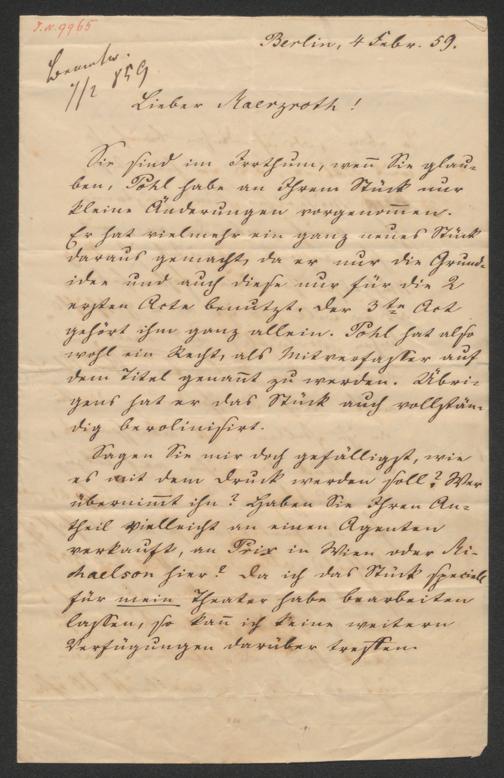 J.N. 9965
Berlin, 4 Febr. 59.
Beantw.
7/2 859
Lieber Maerzroth!
Sie sind im Irrthum, wen̅ Sie glau-
ben, Pohl habe an Ihrem Stück nur
kleine Änderungen vorgenom̅en.
Er hat vielmehr ein ganz neues Stück
daraus gemacht, da er nur die Grund-
idee und auch diese nur für die 2
ersten Acte benutzt. Der 3te Act
gehört ihm ganz allein. Pohl hat also
wohl ein Recht, als Mitverfasser auf
dem Titel genan̅t zu werden. Übri-
gens hat er das Stück auch vollstän-
dig berolinisirt.
Sagen Sie mir doch gefälligst, wie
es mit dem Druck werden soll? Wer
übernim̅t ihn? Haben Sie Ihren An-
theil vielleicht an einen Agenten
verkauft, an Prix in Wien oder Mi-
chaelson hier? Da ich das Stück speciell
für mein Theater habe bearbeiten
lassen, so kan̅ ich keine weitern
Verfügungen darüber treffen.